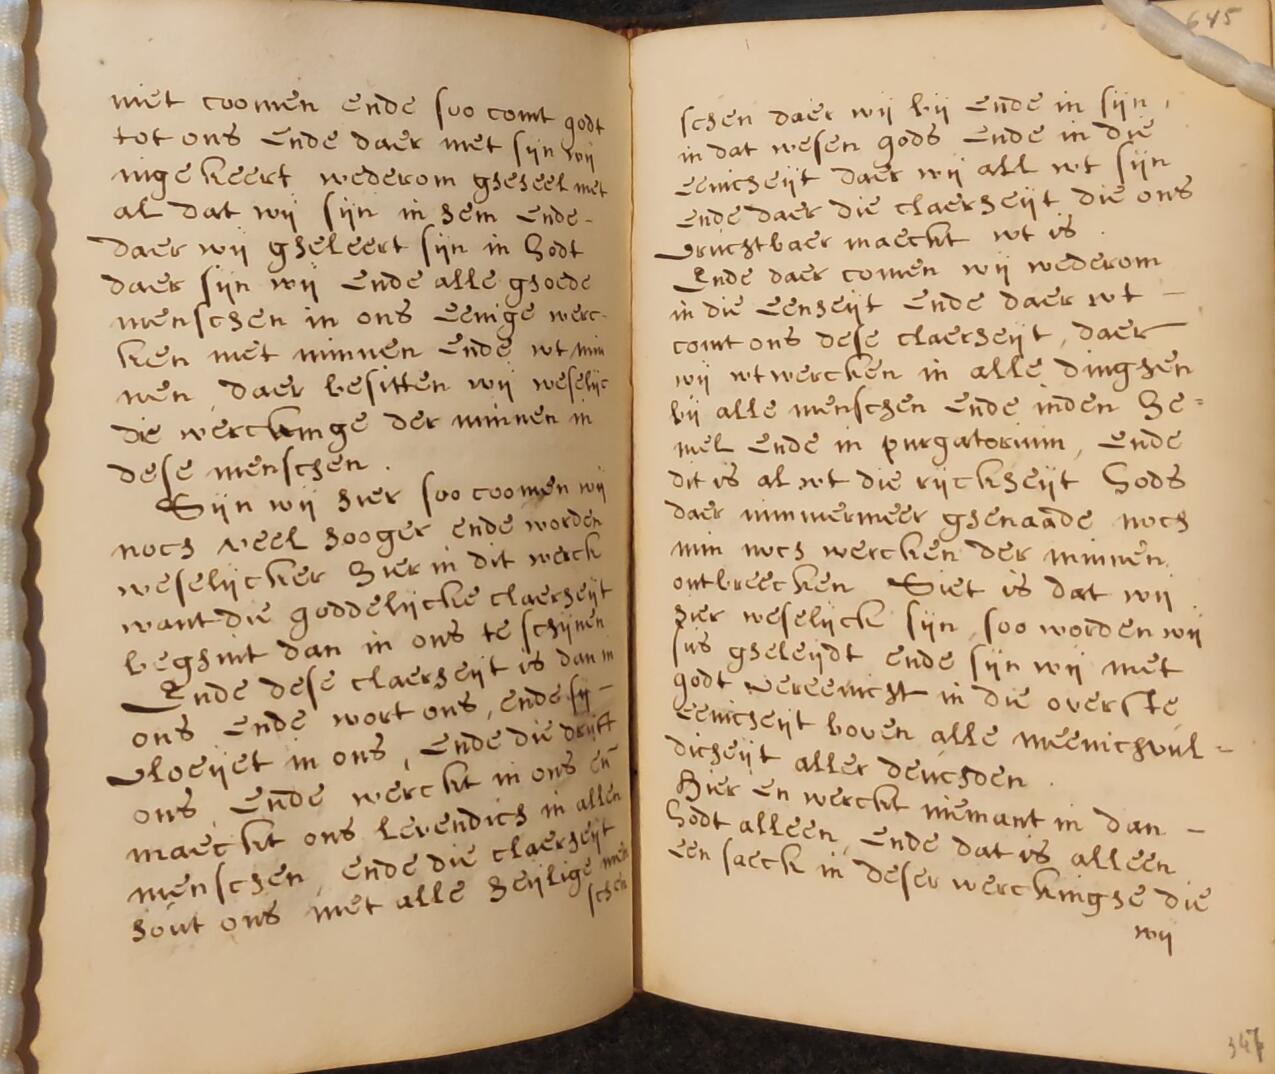 niet coomen ende soo comt godt
tot ons ende daer met sijn wij
ingekeert wederom gheheel met
al dat wij sijn in hem ende -
daer wij gheleert sijn in Godt
daer sijn wij ende alle ghoede
menschen in ons eenige werc-
ken met minnen ende wt min
nen, daer besitten wij weselijc
die werckinge der minnen in
dese menschen.
Sijn wij hier soo coomen wij
noch veel hooger ende worden
weselijcker hier in dit werck
want die goddelijcke claerheijt
beghint dan in ons te schijnen
Ende dese claerheijt is dan in
ons ende wort ons, ende sij -
vloeijet in ons, ende die drijft
ons, ende werckt in ons en̄
maeckt ons levendich in allen
menschen, ende die claerheijt
hout ons met alle heijlige men
schen
645
schen daer wij bij ende in sijn,
in dat wesen gods ende in die
eenicheijt daer wij all wt sijn
ende daer die claerheijt die ons
vruchtbaer maeckt wt is.
Ende daer comen wij wederom
in die eenheijt ende daer wt -
comt ons dese claerheijt, daer
wij wtwercken in alle dinghen
bij alle menschen ende inden he=
mel ende in purgatorium, ende
dit is al wt die rijckheijt Gods
daer nimmermeer ghenaade noch
min noch wercken der minnen
ontbreecken. Siet is dat wij
hier weselijck sijn, soo worden wij
sus gheleijdt ende sijn wij met
godt vereenicht in die overste
eenicheijt boven alle meenichvul=
dicheijt aller deuchden.
Hier en werckt niemant in dan -
Godt alleen, ende dat is alleen
een saeck in deser werckinghe die
wij
347